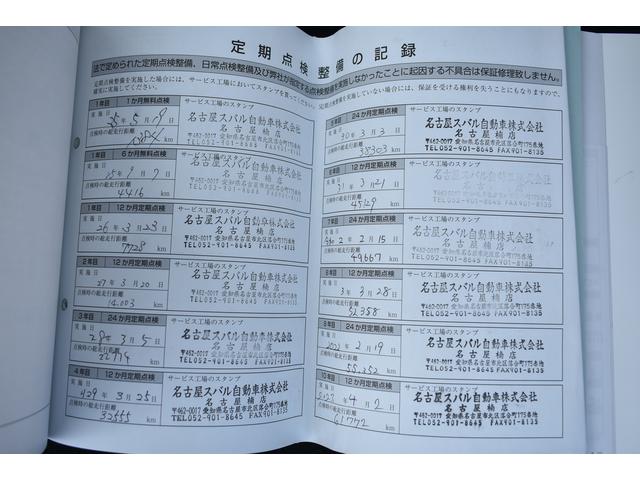 定期点検整備の記録
法で定められた定期点検整備、日常点検整備及び弊社が指定する点検整備を実施しなかったことに起因する不具合は保証修理致しません。
定期点検整備を実施した場合には、サービス工場においてスタンプを貰ってください。
定期点検整備を実施していない場合には、保証を受ける権利を失うこともになりますので、
確実に実施してください。
1年目 1か月無料点検
サービス工場のスタンプ
実施日 25年5月19日
点検時の総走行距離
km
名古屋スバル自動車株式会社
名古屋楠店
〒462-0017 愛知県名古屋市北区落合町175番地
TEL052-901-8645 FAX901-8135
1年目 6か月無料点検
サービス工場のスタンプ
実施日 25年9月7日
点検時の総走行距離
4416 km
名古屋スバル自動車株式会社
名古屋楠店
〒462-0017 愛知県名古屋市北区落合町175番地
TEL052-901-8645 FAX901-8135
1年目 12か月定期点検
サービス工場のスタンプ
実施日 26年3月23日
点検時の総走行距離
7728 km
名古屋スバル自動車株式会社
名古屋楠店
〒462-0017 愛知県名古屋市北区落合町175番地
TEL052-901-8645 FAX901-8135
2年目 12か月定期点検
サービス工場のスタンプ
実施日 27年3月20日
点検時の総走行距離
14,003 km
名古屋スバル自動車株式会社
名古屋楠店
〒462-0017 愛知県名古屋市北区落合町175番地
TEL052-901-8645 FAX901-8135
3年目 24か月定期点検
サービス工場のスタンプ
実施日 28年3月5日
点検時の総走行距離
km
名古屋スバル自動車株式会社
名古屋楠店
〒462-0017 愛知県名古屋市北区落合町175番地
TEL052-901-8645 FAX901-8135
4年目 12か月定期点検
サービス工場のスタンプ
実施日 H29年3月25日
点検時の総走行距離
32555 km
名古屋スバル自動車株式会社
名古屋楠店
〒462-0017 愛知県名古屋市北区落合町175番地
TEL052-901-8645 FAX901-8135
5年目 24か月定期点検
サービス工場のスタンプ
実施日 30年3月3日
点検時の総走行距離
35303 km
名古屋スバル自動車株式会社
名古屋楠店
〒462-0017 愛知県名古屋市北区落合町175番地
TEL052-901-8645 FAX901-8135
6年目 12か月定期点検
サービス工場のスタンプ
実施日 31年3月21日
点検時の総走行距離
45129 km
名古屋スバル自動車株式会社
名古屋楠店
〒462-0017 愛知県名古屋市北区落合町175番地
TEL052-901-8645 FAX901-8135
7年目 24か月定期点検
サービス工場のスタンプ
実施日 2年2月15日
点検時の総走行距離
49667 km
名古屋スバル自動車株式会社
名古屋楠店
〒462-0017 愛知県名古屋市北区落合町175番地
TEL052-901-8645 FAX901-8135
8年目 12か月定期点検
サービス工場のスタンプ
実施日 3年3月28日
点検時の総走行距離
52358 km
名古屋スバル自動車株式会社
名古屋楠店
〒462-0017 愛知県名古屋市北区落合町175番地
TEL052-901-8645 FAX901-8135
9年目 24か月定期点検
サービス工場のスタンプ
実施日 2022年2月19日
点検時の総走行距離
55252 km
名古屋スバル自動車株式会社
名古屋楠店
〒462-0017 愛知県名古屋市北区落合町175番地
TEL052-901-8645 FAX901-8135
10年目 12か月定期点検
サービス工場のスタンプ
実施日 2023年4月2日
点検時の総走行距離
61772 km
名古屋スバル自動車株式会社
名古屋楠店
〒462-0017 愛知県名古屋市北区落合町175番地
TEL052-901-8645 FAX901-8135